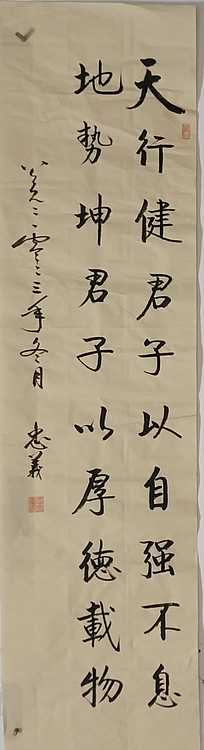 天行健君子以自强不息
地勢坤君子以厚德載物
公元二零二三年冬月 忠義